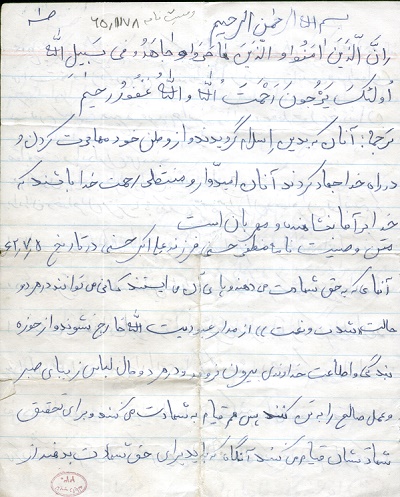 بسم الله الرحمن الرحیم
وصیت نامه
اِنَّ الَّذینَ امَنُوا وَ الَّذینَ هاجَروا و جاهَدُو فی سَبیلِ الله
اُولئکَ یَرْجُونَ رَحْمَتَ اللهِ وَ اللهُ غَفُورٌ رَحیمٌ
ترجمه: آنان که بدین اسلام گرویدند و از وطن خود مهاجرت کردن و
در راه خدا جهاد کردند آنان امیدوار و منتظر رحمت خدا باشند که
خدا بر آنان بخشاینده و مهربان است
متن وصیت نامه مظفر حسنی فرزند علی اکبر حسنی در تاریخ ۶۲,۷,۸
آنانی که به حق شهادت می دهند و پای آن می ایستند کسانی می توانند در هر دو
حالت شدت و نعمت از مدار عبودیت الله خارج نشوند و از حوزه
بندگی و اطاعت خداوندی بیرون نروند و در هر دو حال لباس زیبای صبر
و عمل صالح را به تن کنند پس هم قیام به شهادت می کنند و برای تحقیق
شهادتشان قیام می کنند آنگاه که باید برای حق شهادت بدهند از